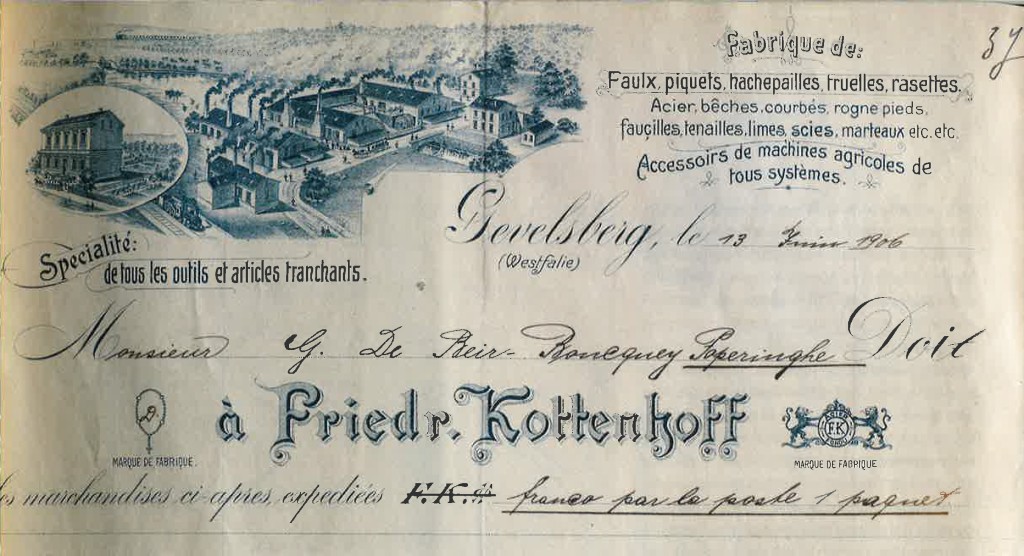 37
Fabrique de:
Faulx, piquets, hachepailles, truelles, rasettes.
Acier, bêches, courbés, rogne pieds,
fauçilles, tenailles, limes, scies, marteaux etc. etc.
Accessoirs de machines agricoles de
tous systèmes.
Gevelsberg, le 13 Juin 1906
(Westfalie)
Spécialité:
de tous les outils et articles tranchants.
Monsieur G. De Beir - Boucquey Poperinghe Doit
à Friedr. Kottenhoff
MARQUE DE FABRIQUE.
ACIER
F.K
MARQUE DE FABRIQUE
les marchandises ci-apres, expediées F. K. franco par la poste 1 paquet